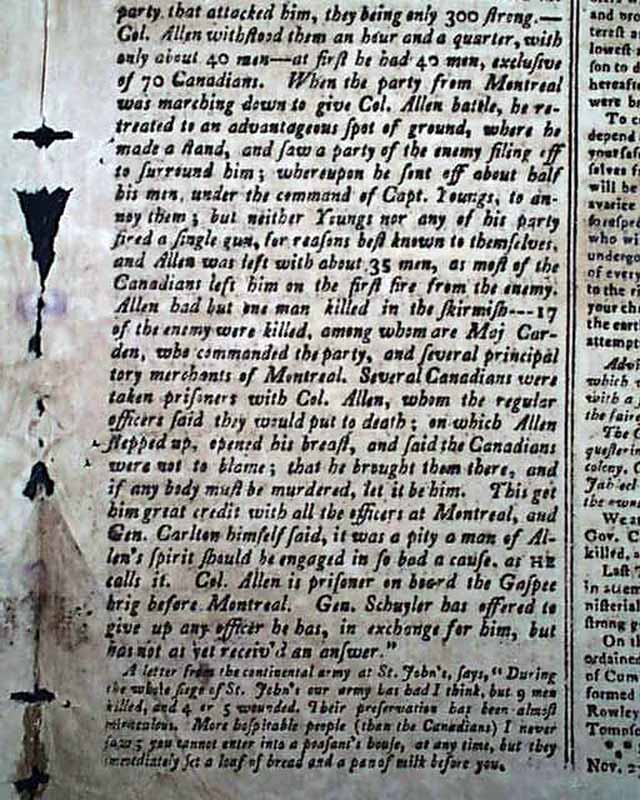 party that attacked him, they being only 300 ſtrong.—
Col. Allen withſtood them an hour and a quarter, with
only about 40 men—at firſt he had 40 men, excluſive
of 70 Canadians. When the party from Montreal
was marching down to give Col. Allen battle, he re-
treated to an advantageous ſpot of ground, where he
made a ſtand, and ſaw a party of the enemy filing off
to ſurround him; whereupon he ſent off about half
his men, under the command of Capt. Youngs, to an-
noy them; but neither Youngs nor any of his party
fired a ſingle gun, for reaſons beſt known to themſelves,
and Allen was left with about 35 men, as moſt of the
Canadians left him on the firſt fire from the enemy.
Allen had but one man killed in the ſkirmiſh---17
of the enemy were killed, among whom are Maj Car-
den, who commanded the party, and ſeveral principal
tory merchants of Montreal. Several Canadians were
taken priſoners with Col. Allen, whom the regular
officers ſaid they would put to death; on which Allen
ſtepped up, opened his breaſt, and ſaid the Canadians
were not to blame; that he brought them there, and
if any body muſt be murdered, let it be him. This got
him great credit with all the officers at Montreal, and
Gen. Carlton himſelf ſaid, it was a pity a man of Al-
len's ſpirit ſhould be engaged in ſo bad a cauſe, as HE
calls it. Col. Allen is priſoner on board the Gaſpee
brig before Montreal. Gen. Schuyler has offered to
give up any officer he has, in exchange for him, but
has not as yet receiv'd an anſwer."
A letter from the continental army at St. John's, ſays, "During
the whole ſiege of St. John's our army has had I think, but 9 men
killed, and 4 or 5 wounded. Their preſervation has been almoſt
miraculous. More hoſpitable people (than the Canadians) I never
ſaw; you cannot enter into a peaſant's houſe, at any time, but they
immediately ſet a loaf of bread and a pan of milk before you.
and
tereſt
loweſt
ſon to
hereafte
were
To
depend
your
ſelves
will be
avarice
who
undergo
of ever
to the
your
the
attempt
which
with a
the fair
The
colony.
the
We
Gov. C
killed,
Laſt
in
niſterial
ſtrong
On th
ordained
of Cum
formed
Rowley
Tompſo
Nov. 2